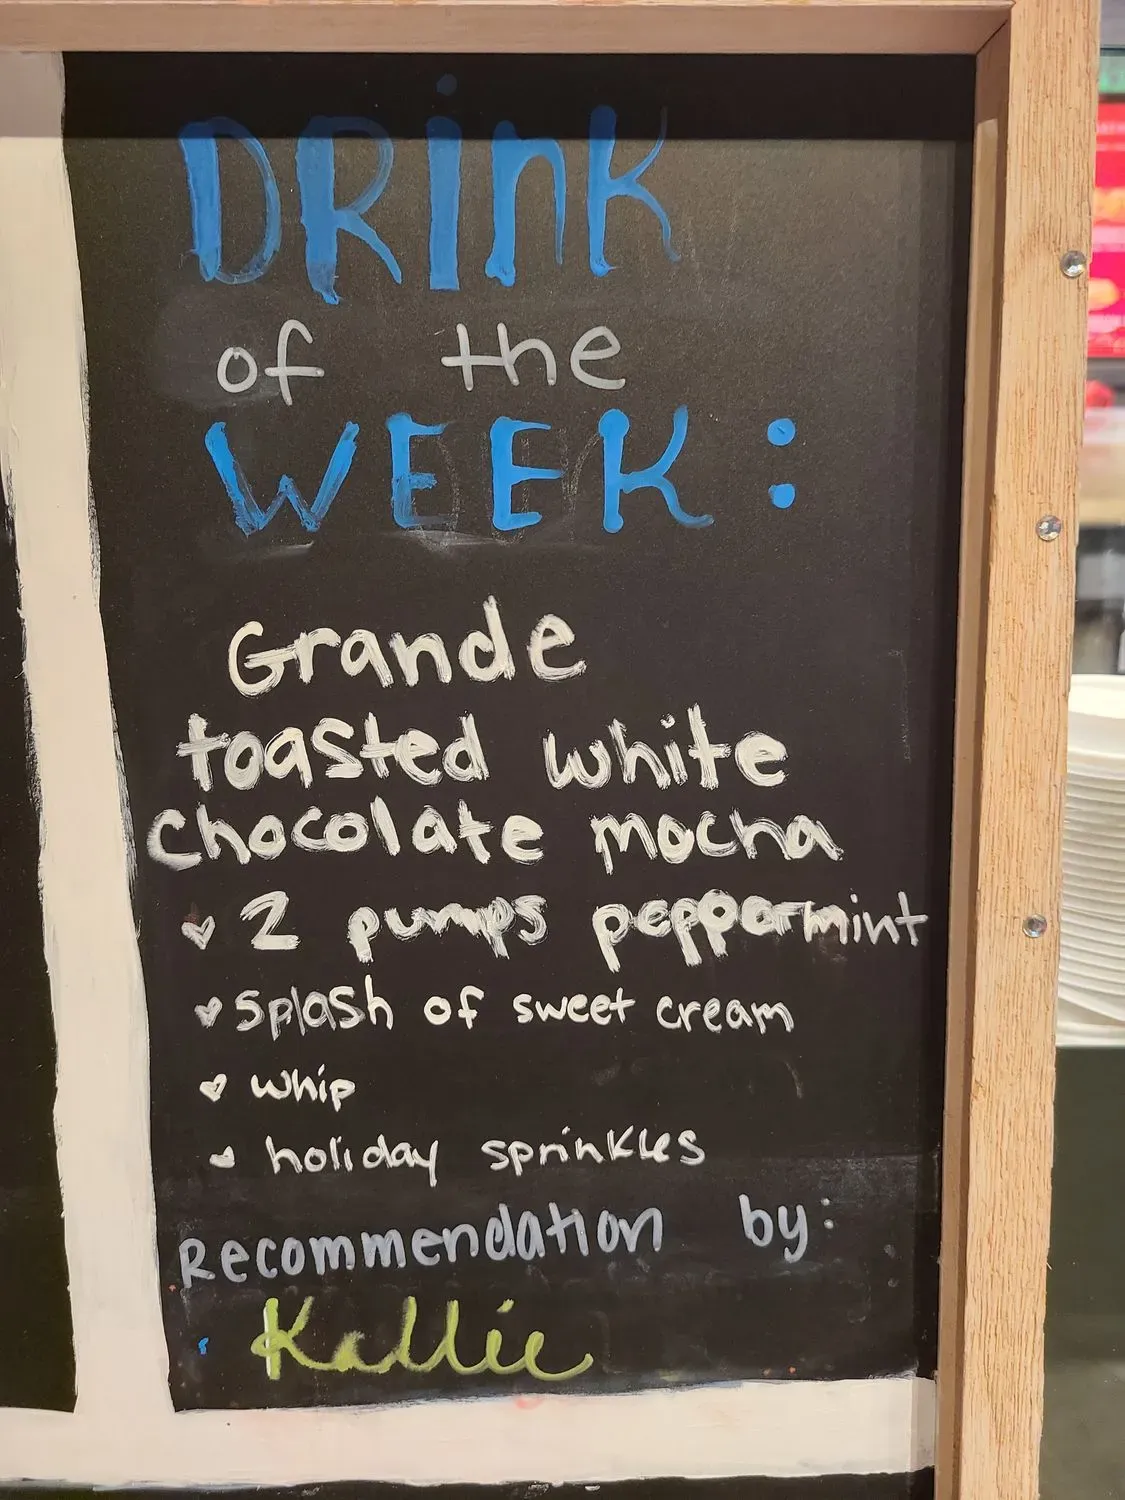 DRinK
of the
WEEK:
Grande
toasted white
chocolate mocha
♥ 2 pumps peppermint
♥ splash of sweet cream
♥ whip
♥ holiday sprinkles
Recommendation by:
Kallie